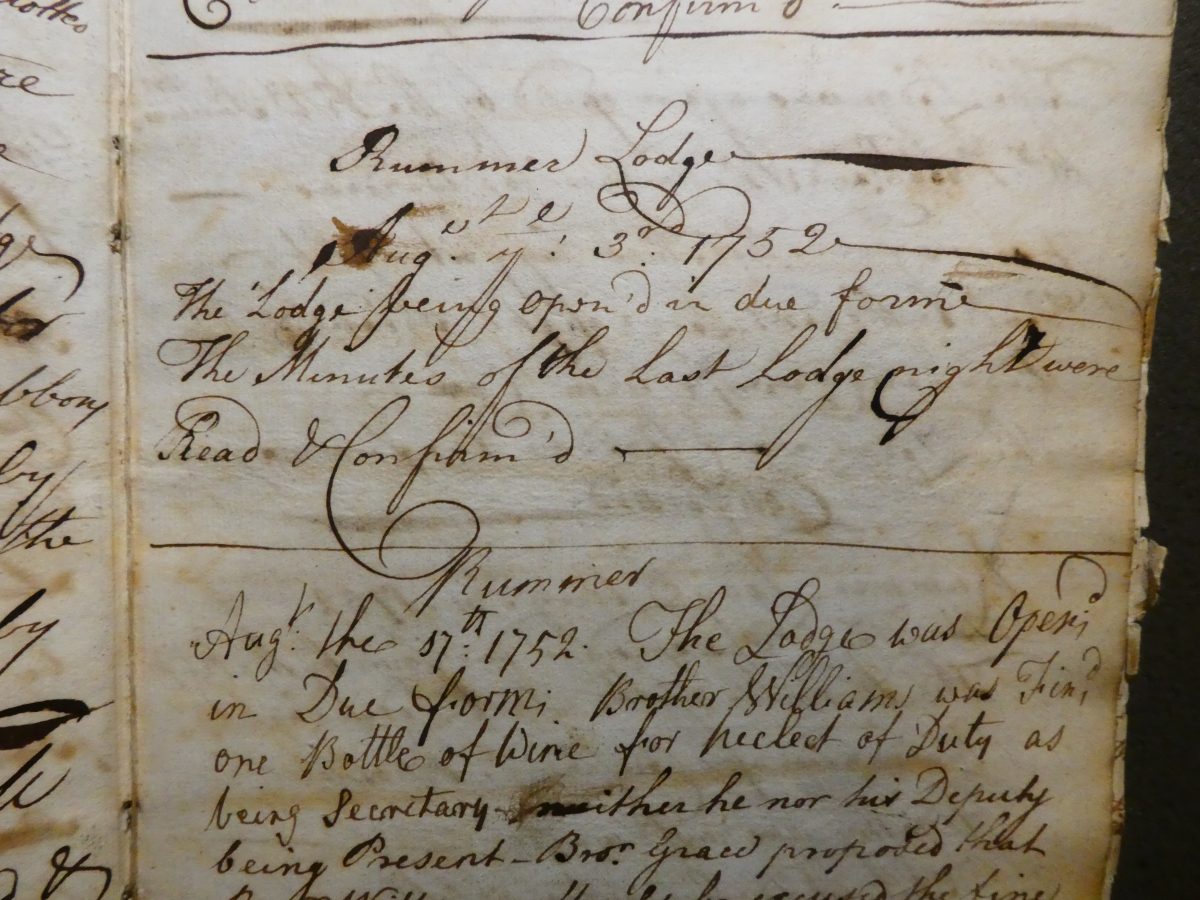 Confirm'd
Rummer Lodge
Augst ye: 3rd. 1752
The Lodge being open'd in due forme
The Minutes of the Last Lodge night were
Read & Confirm'd
Rummer
Augt. the 17th: 1752. The Lodge was Open'd
in Due form; Brother Williams was Fin'd
one Bottle of Wine for neclect of Duty as
being Secretary neither he nor his Deputy
being Present - Bror. Grace proposed that
be excused the fine
re
by
the
by
&